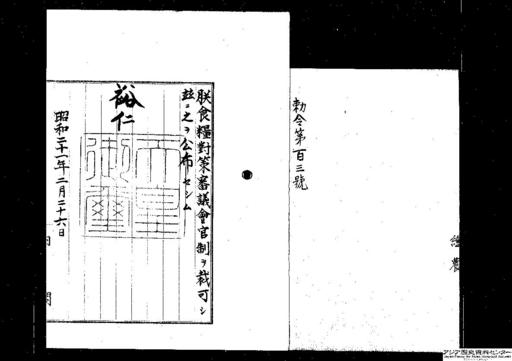 朕食糧對策審議會官制ヲ裁可シ
玆ニ之ヲ公布セシム
裕仁
天皇御璽
昭和二十一年二月二十六日
勅令第百三號
アジア歴史資料センター